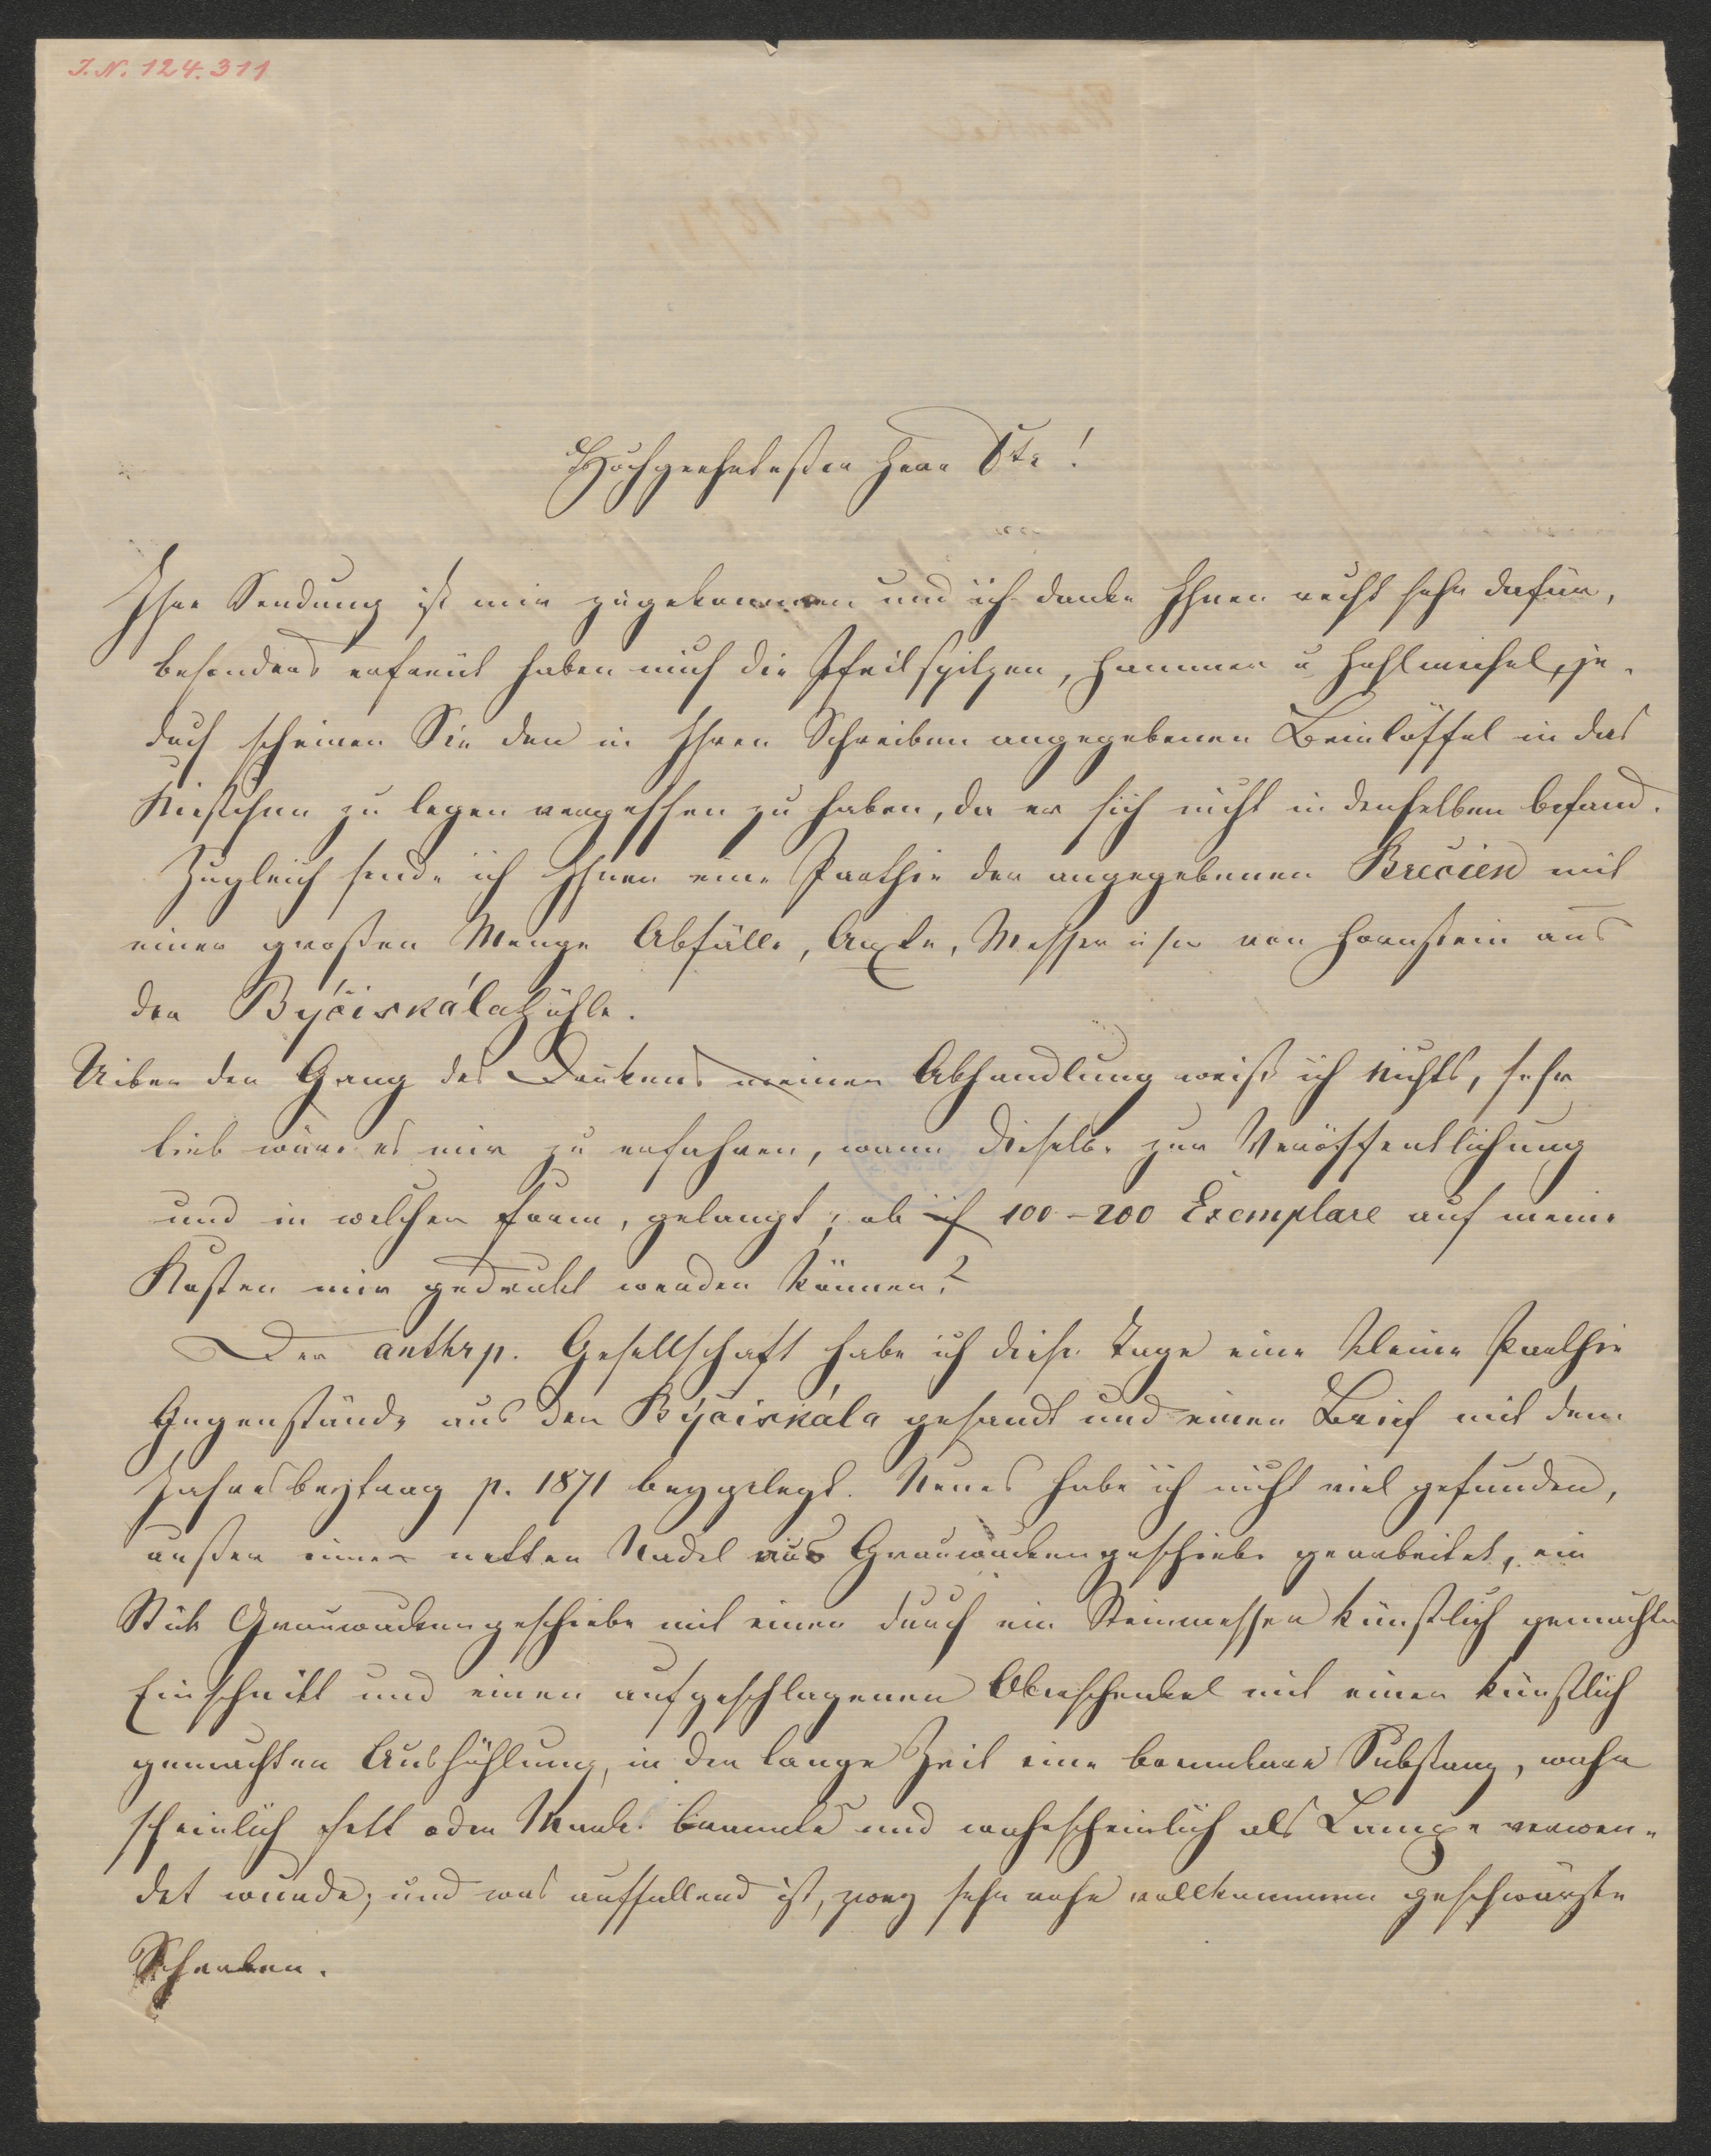 I.N. 124.311
Hochgeehrtester Herr Dtr!
Ihre Sendung ist mir zugekommen und ich danke Ihnen recht sehr dafür,
besonders erfreut haben mich die Pfeilspitzen, Hammer u Hohlmeißel, je-
doch scheinen Sie den in Ihren Schreiben angegebenen Beinlöffel in das
Kistchen zu legen vergessen zu haben, da er sich nicht in denselben befand.
Zugleich sende ich Ihnen eine Parthie der angegebenen Brečien mit
einer großen Menge Abfälle, Axte, Messer u s w von Hornstein aus
der Býčiskálahöhle.
Uiber den Gang des Druckens meiner Abhandlung weiß ich nichts, sehr
lieb wäre es mir zu erfahren, wann dieselbe zur Veröffentlichung
und in welcher Form, gelangt; ob 100-200 Exemplare auf meine
Kosten mir gedruckt werden können?
Der anthrp. Gesellschaft habe ich diese Tage eine kleine Parthie
Gegenstände aus der Býčiskála gesandt und einen Brief mit dem
Jahresbeytrag p. 1871 beygelegt. Neues habe ich nicht viel gefunden,
außer einer netten Nadel aus Grauwackengeschiebe gearbeitet, ein
Stük Grauwackengeschiebe mit einen durch ein Steinmesser künstlich gemachten
Einschnitt und einen aufgeschlagenen Oberschenkel mit einer künstlich
gemachten Aushöhlung, in der lange Zeit eine brennbare Substanz, wahr
scheinlich Fett oder Mark brannte und wahrscheinlich als Lampe verwen-
det wurde; und was auffallend ist, zwey sehr rohe vollkommen geschwärzte
Scherben.